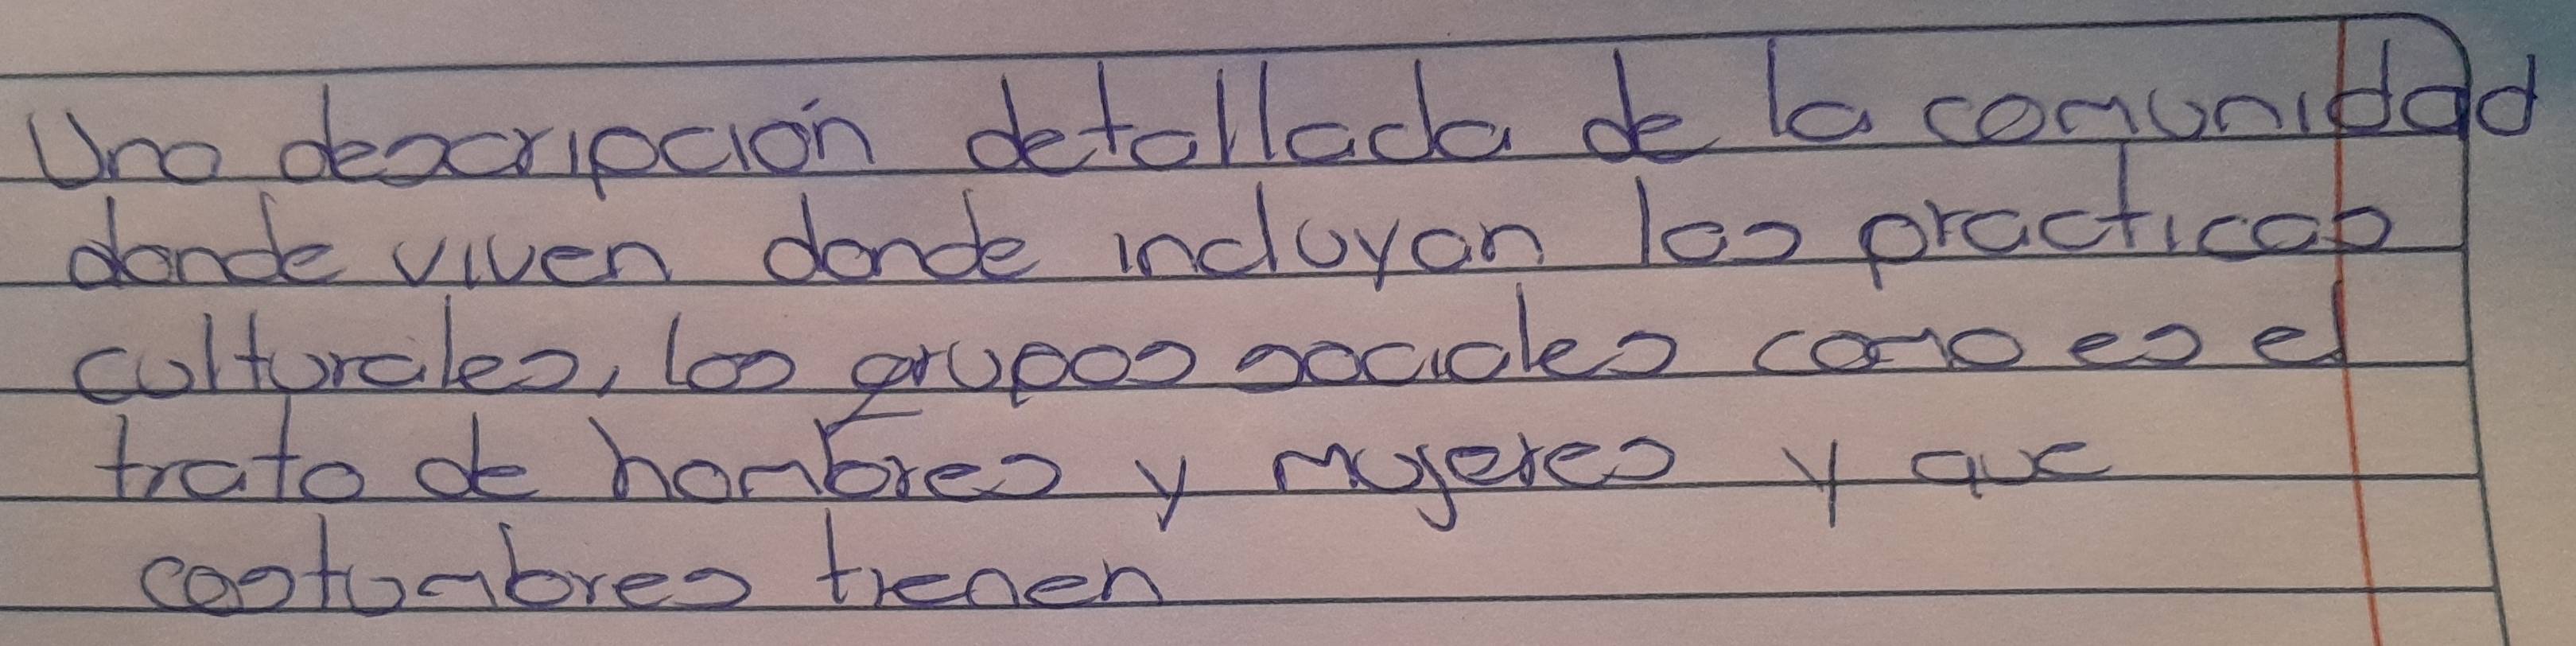 Una descripción detallada de la comunidad
donde viven donde incluyan las practicas
culturales, los grupos sociales como es el
trato de hombres y mujeres y que
costumbres tienen